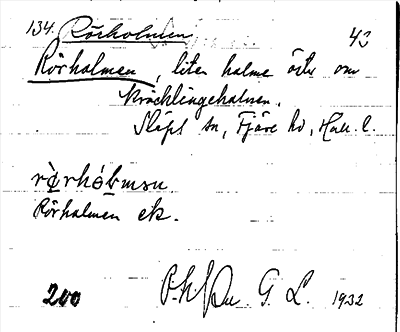 134. Rörholmen 43
Rörholmen, liten holme öster om
Kräcklingeholmen.
Släps sn, Fjäre hd, Hall. l.
Rörholmen ek.
200 G. L. 1932